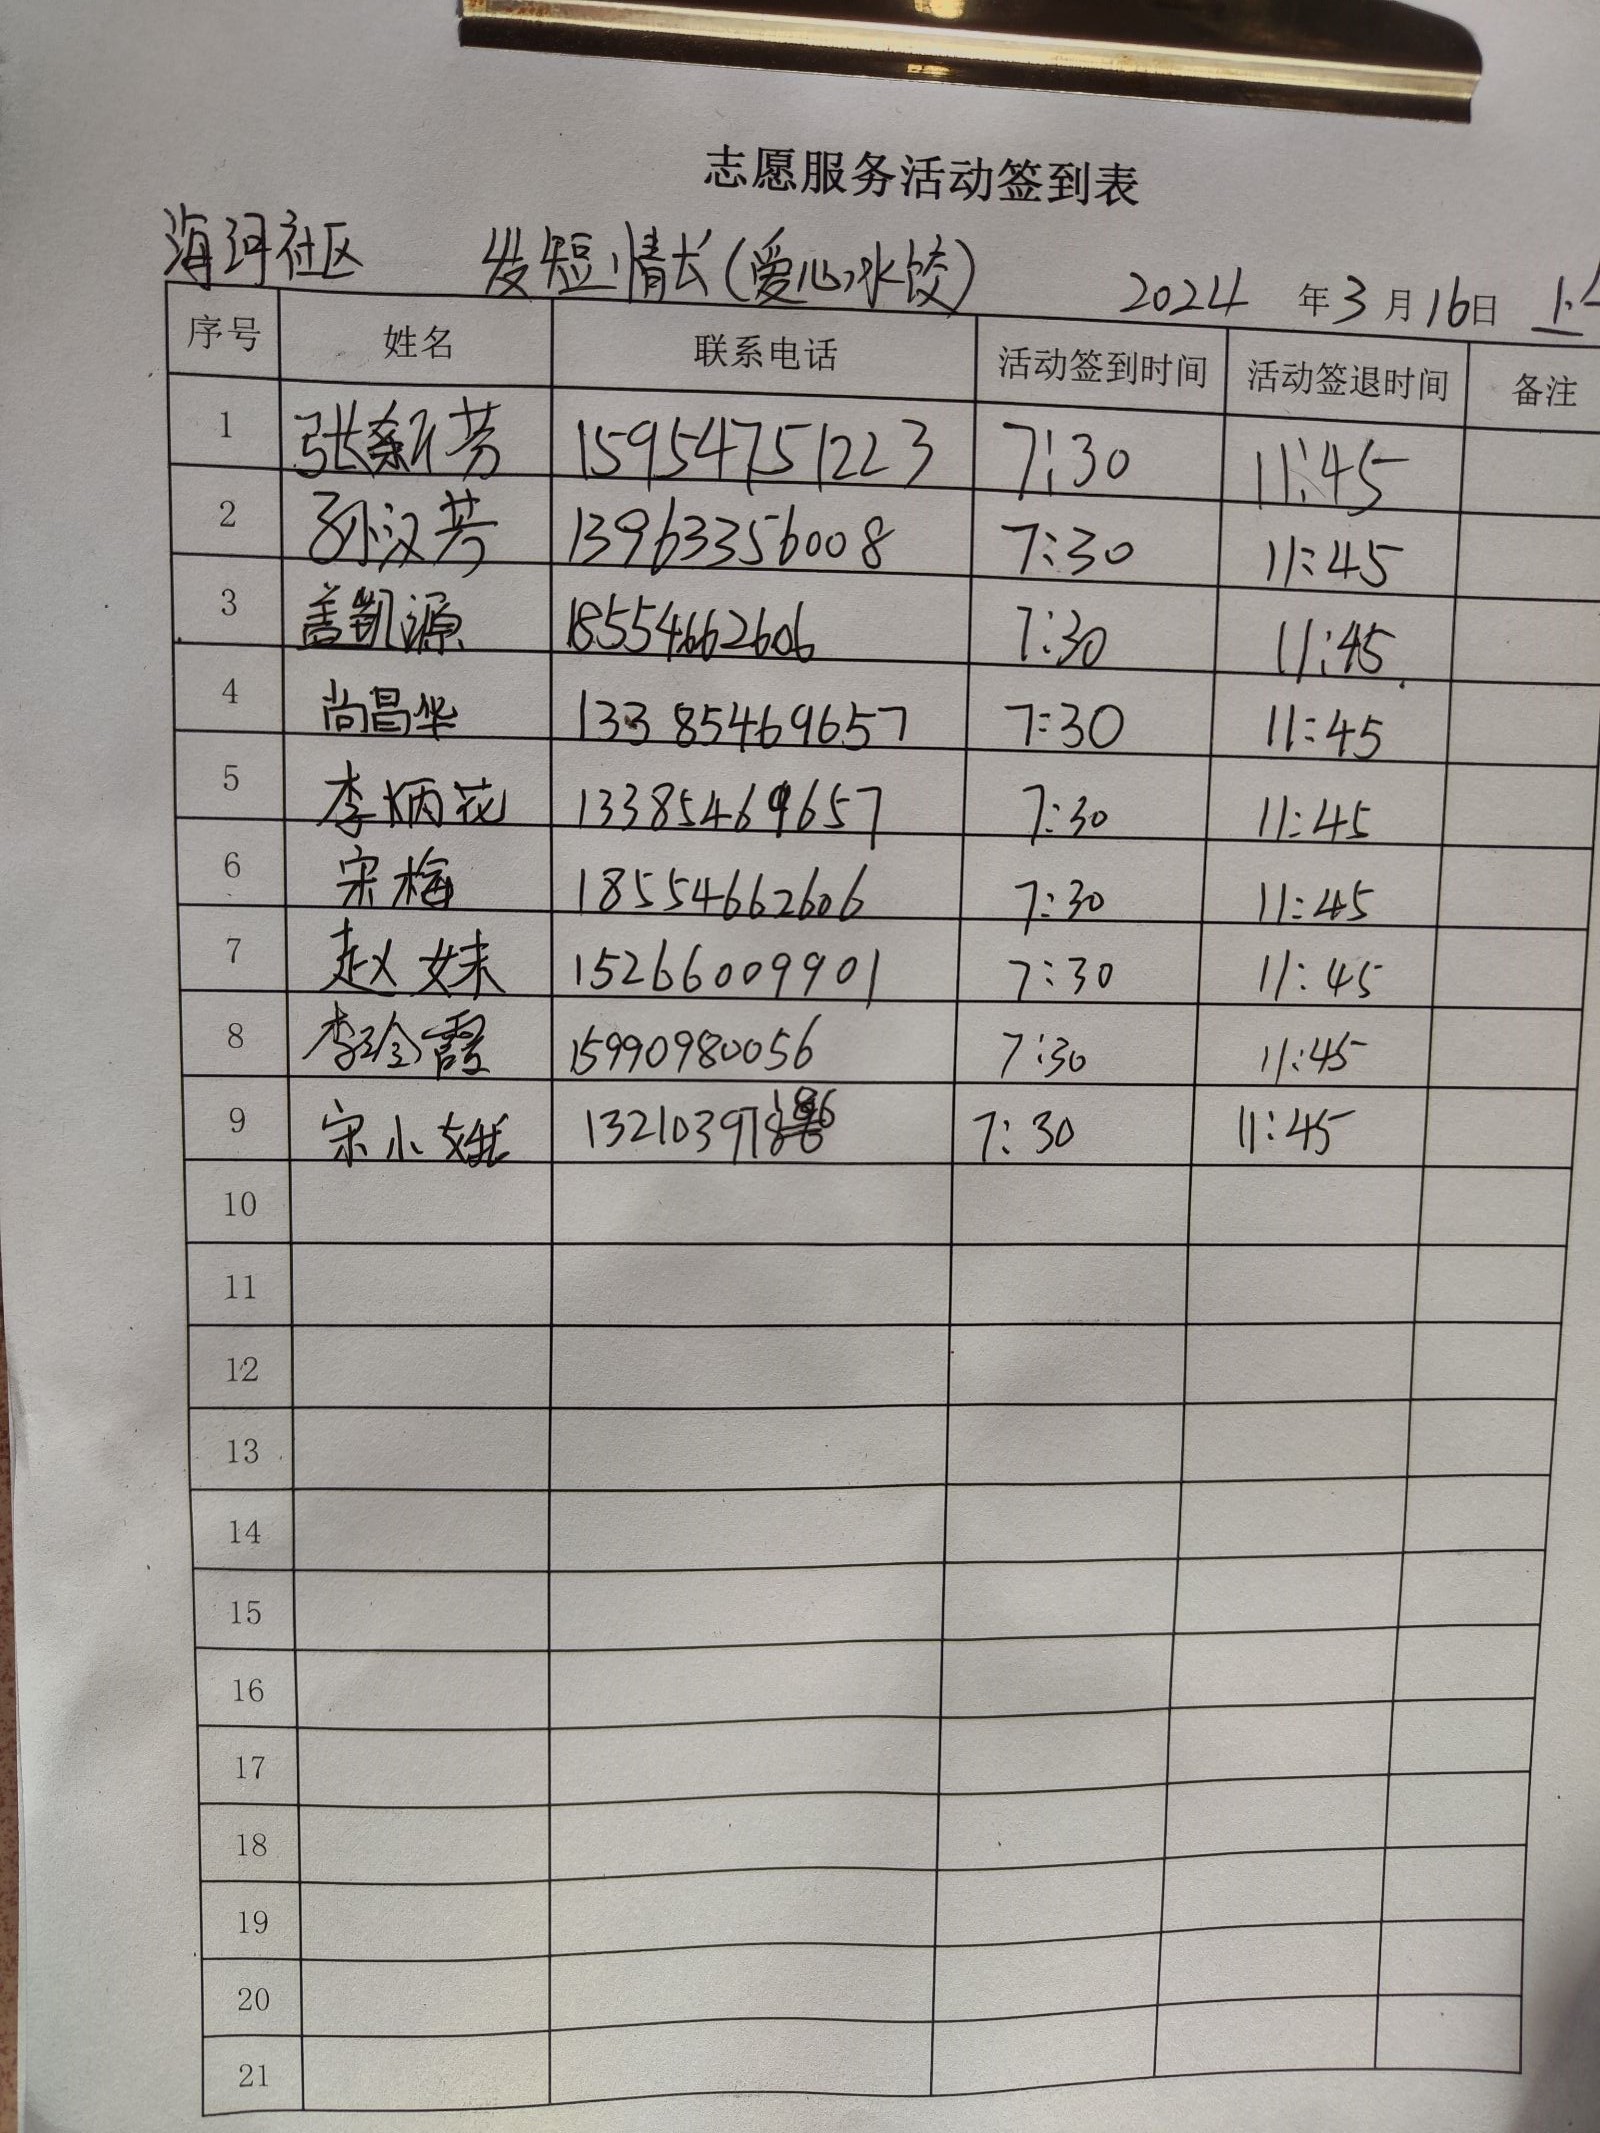 志愿服务活动签到表
海河社区 发短情长(爱心水饺) 2024 年 3 月 16 日 上
序号 姓名 联系电话 活动签到时间 活动签退时间 备注
1 张新芳 15954751223 7:30 11:45
2 孙汉芳 13963356008 7:30 11:45
3 盖凯源 18554662606 7:30 11:45
4 尚昌华 13385469657 7:30 11:45
5 李炳花 13385469657 7:30 11:45
6 宋梅 18554662606 7:30 11:45
7 赵妹 15266009901 7:30 11:45
8 李玲霞 15990980056 7:30 11:45
9 宋小 7:30 11:45
10
11
12
13
14
15
16
17
18
19
20
21